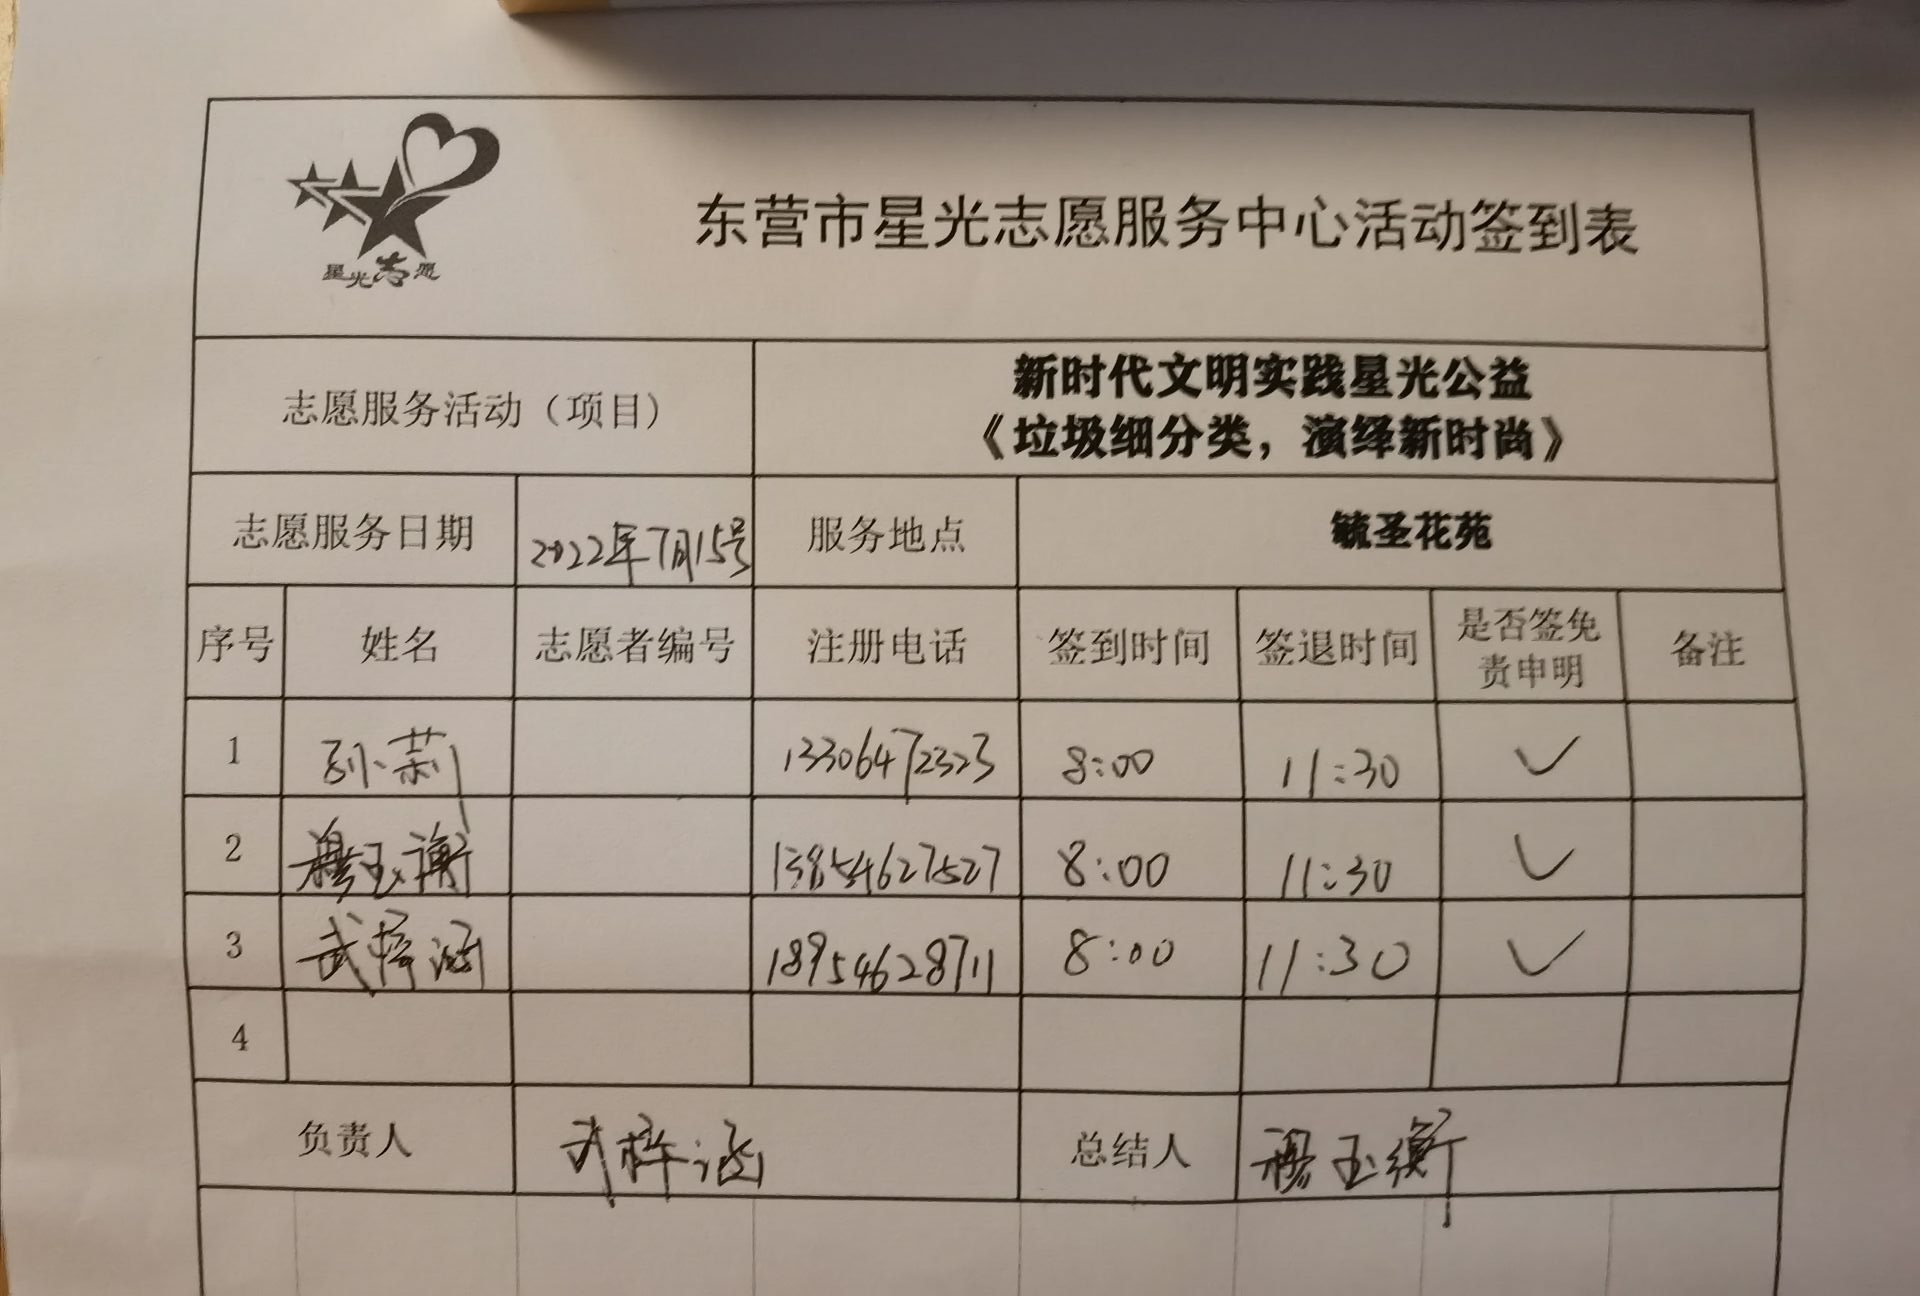 星光志愿
东营市星光志愿服务中心活动签到表
志愿服务活动（项目）
新时代文明实践星光公益
《垃圾细分类，演绎新时尚》
志愿服务日期 2022年7月15号 服务地点 毓圣花苑
序号 姓名 志愿者编号 注册电话 签到时间 签退时间 是否签免 备注
责申明
1 孙莉 13306472323 8:00 11:30 ✓
2 穆玉衡 13854627527 8:00 11:30 ✓
3 武梓涵 18954628711 8:00 11:30 ✓
4
负责人 武梓涵 总结人 穆玉衡